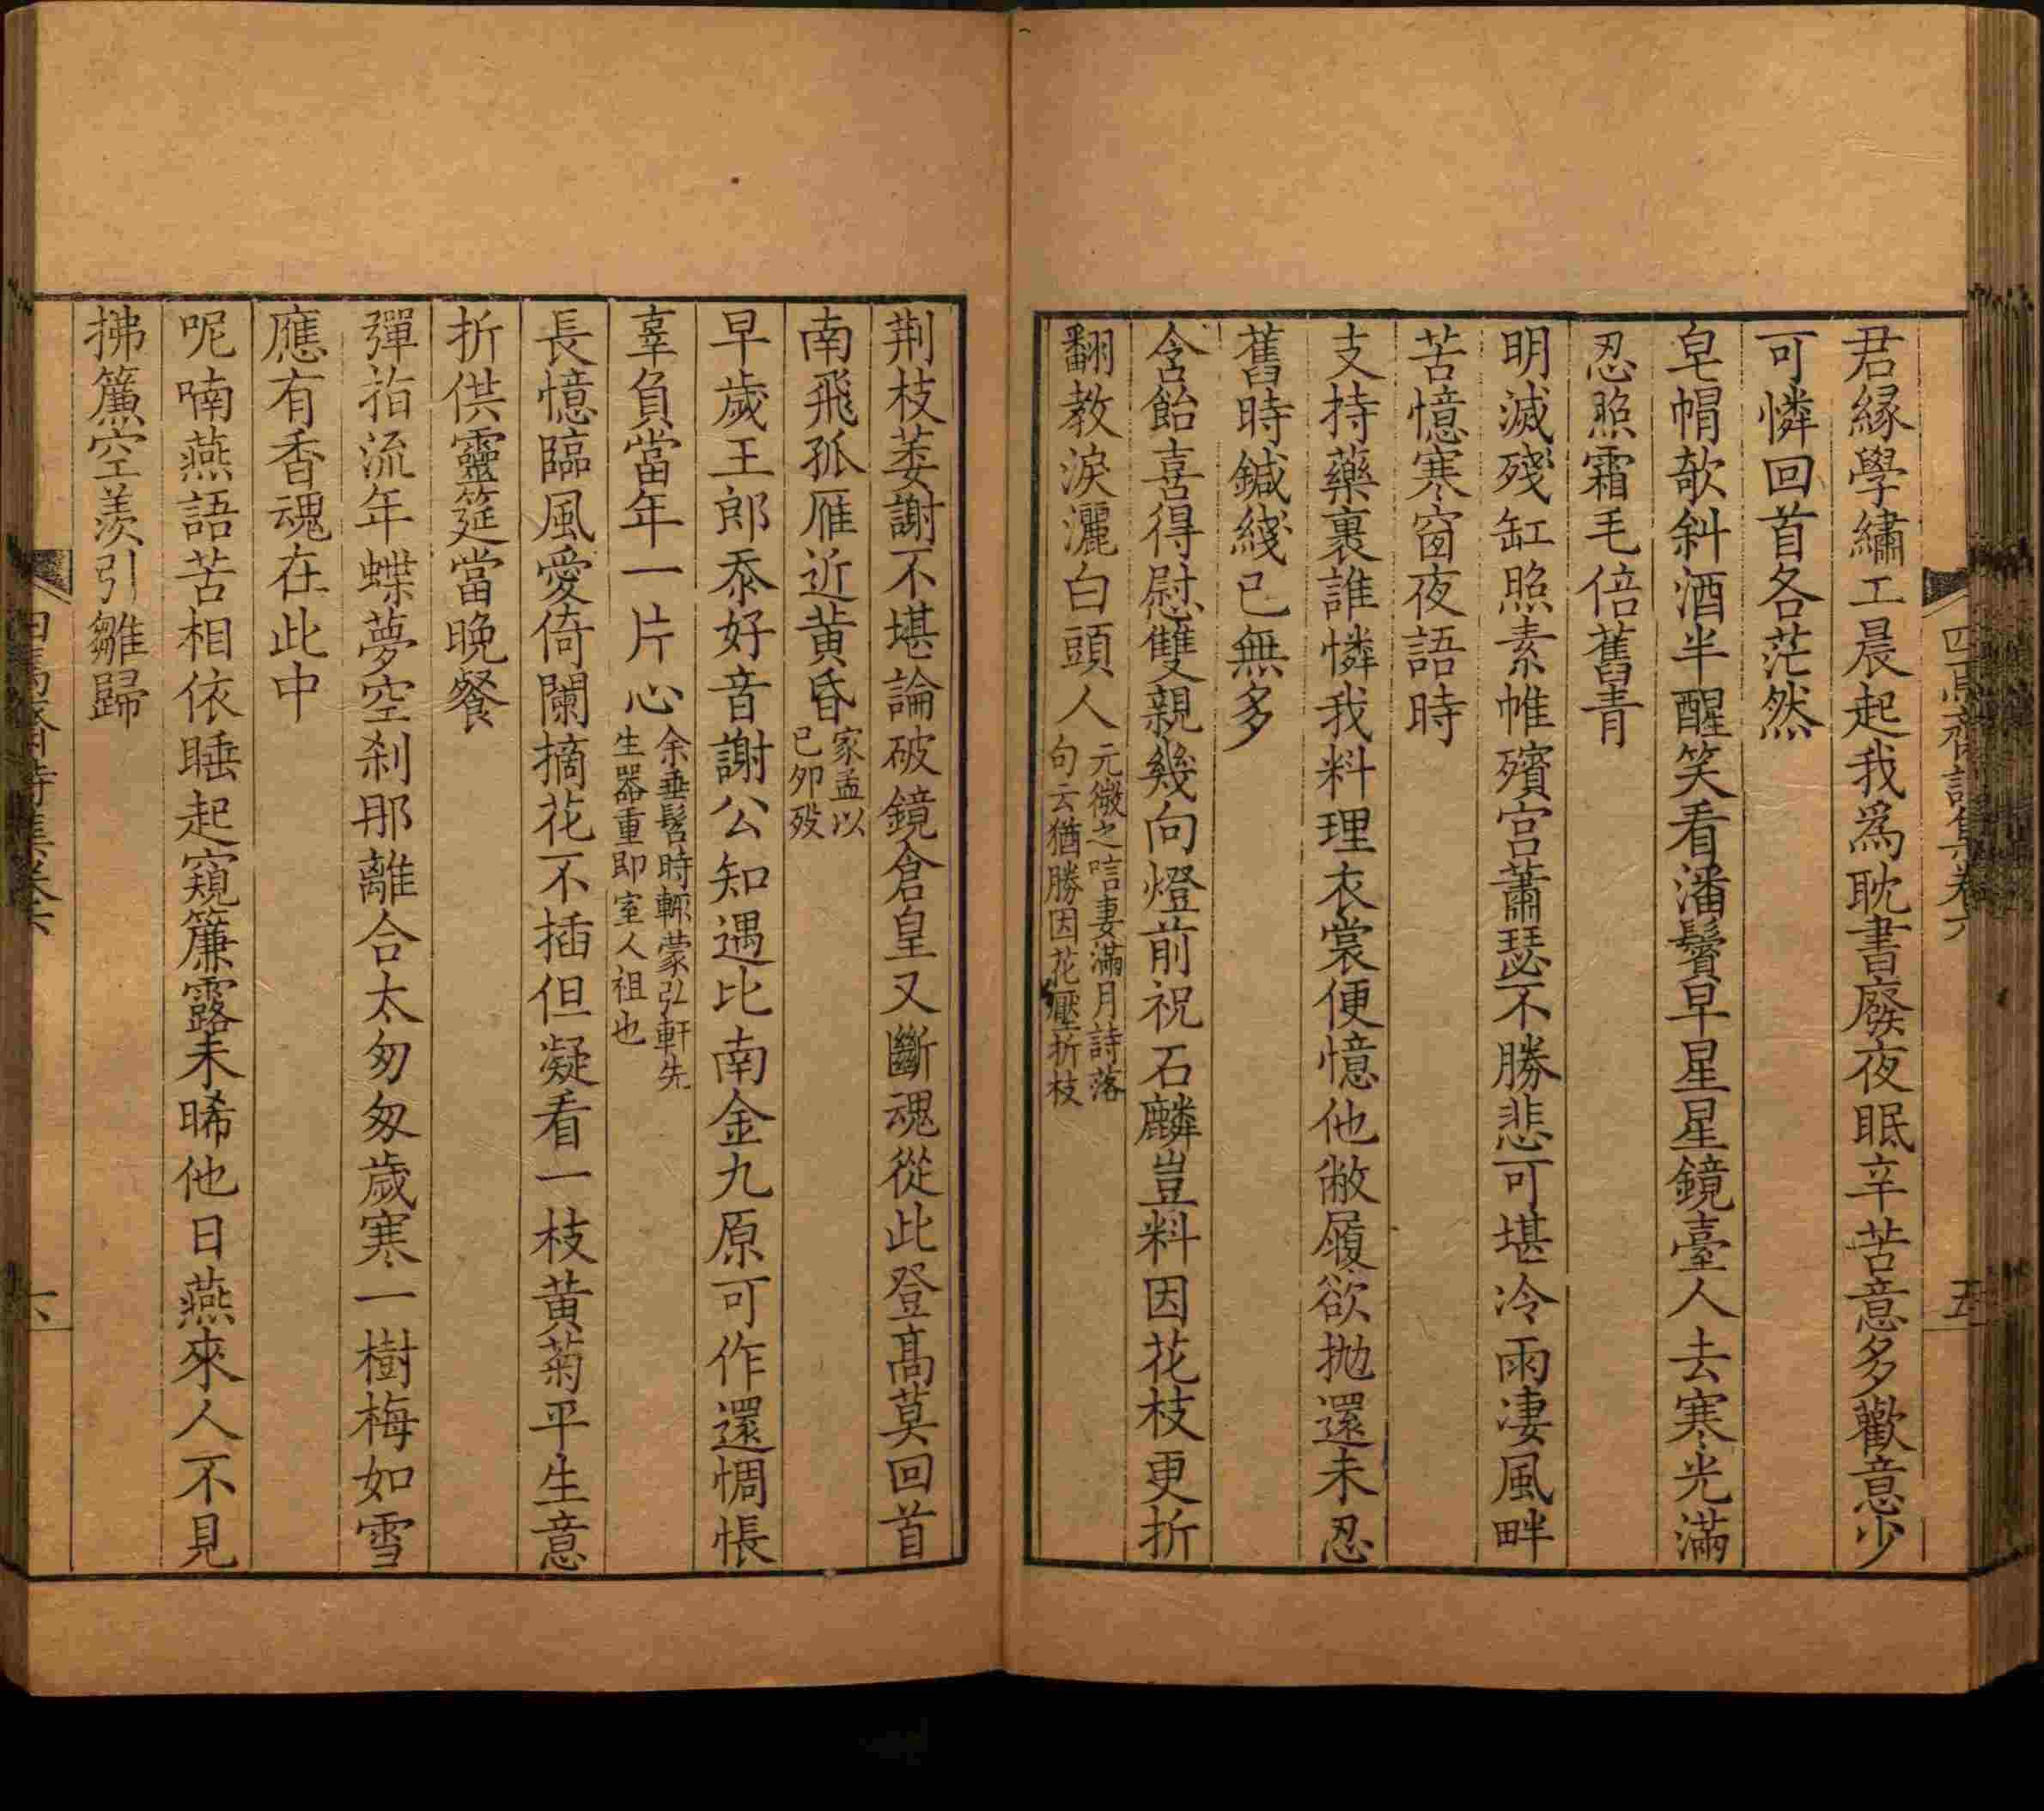 四焉齋詩集卷六
五
君緣學繡工晨起我爲耽書廢夜眠辛苦意多歡意少
可憐回首各茫然
皂帽欹斜酒半醒笑看潘鬢早星星鏡臺人去寒光滿
忍照霜毛倍舊青
明滅殘缸照素帷殯宮蕭瑟不勝悲可堪冷雨凄風畔
苦憶寒窗夜語時
支持藥裹誰憐我料理衣裳便憶他敝履欲拋還未忍
舊時鍼綫已無多
含飴喜得慰雙親幾向燈前祝石麟豈料因花枝更折
翻教淚灑白頭人
元微之唁妻滿月詩落
句云猶勝因花壓折枝
荆枝萎謝不堪論破鏡倉皇又斷魂從此登高莫回首
南飛孤雁近黃昏
家孟以
己卯歿
早歲王郎忝好音謝公知遇比南金九原可作還惆悵
辜負當年一片心
余垂髫時輒蒙弘軒先
生器重即室人祖也
長憶臨風愛倚闌摘花不插但凝看一枝黃菊平生意
折供靈筵當晚餐
彈指流年蝶夢空刹那離合太匆匆歲寒一樹梅如雪
應有香魂在此中
呢喃燕語苦相依睡起窺簾露未晞他日燕來人不見
拂簾空羨引雛歸
四焉齋詩集卷六
六